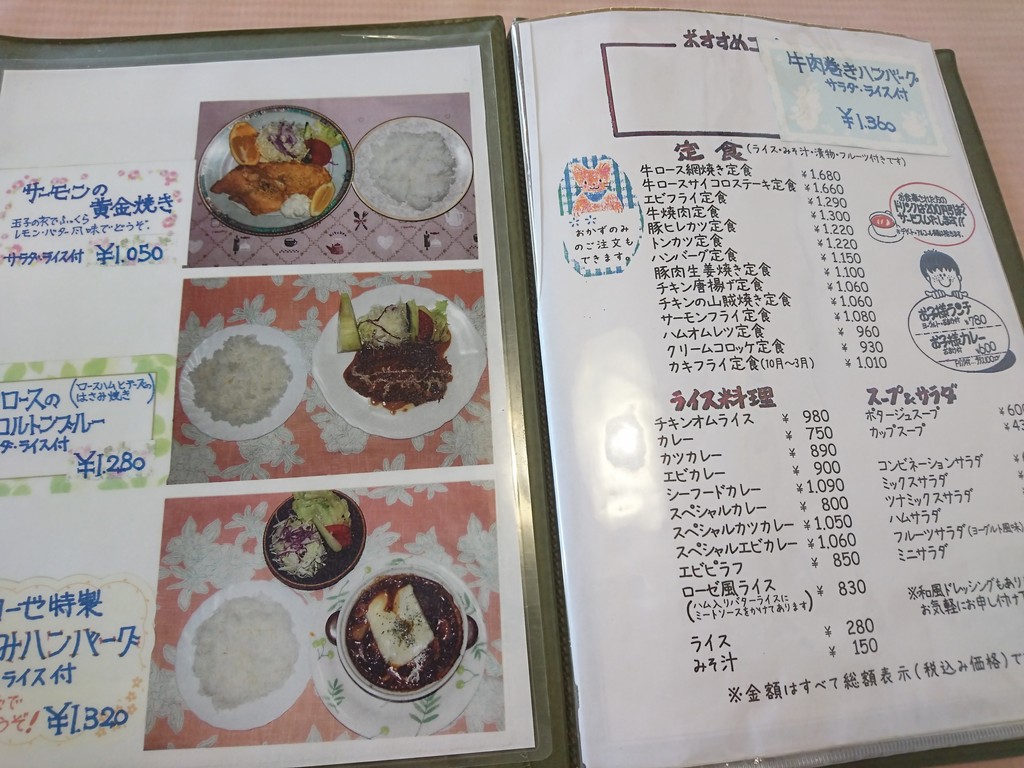 サーモンの
黄金焼き
玉子の衣でふっくら
レモン・バター風味でどうぞ。
サラダ・ライス付 ¥1.050
ロースの
(ロースハムとチーズの
はさみ焼き)
コルドンブルー
ダ・ライス付
¥1.280
ローゼ特製
みハンバーグ
ライス付
ぞ! ¥1.320
おすすめ
牛肉巻きハンバーグ
サラダ・ライス付
¥1.360
定食(ライス・みそ汁・漬物・フルーツ付きです)
牛ロース網焼き定食 ¥1.680
牛ロースサイコロステーキ定食 ¥1.660
エビフライ定食 ¥1.290
牛焼肉定食 ¥1.300
豚ヒレカツ定食 ¥1.220
トンカツ定食 ¥1.220
ハンバーグ定食 ¥1.150
豚肉生姜焼き定食 ¥1.100
チキン唐揚げ定食 ¥1.060
チキンの山賊焼き定食 ¥1.060
サーモンフライ定食 ¥1.080
ハムオムレツ定食 ¥ 960
クリームコロッケ定食 ¥ 930
カキフライ定食(10月~3月) ¥1.010
おかずのみ
のご注文も
できます。
お食事された方の
ドリンク200円引きで
サービスします!!
お子様ランチ
¥780
お子様カレー
¥600
ライス料理
チキンオムライス ¥ 980
カレー ¥ 750
カツカレー ¥ 890
エビカレー ¥ 900
シーフードカレー ¥1.090
スペシャルカレー ¥ 800
スペシャルカツカレー ¥1.050
スペシャルエビカレー ¥1.060
エビピラフ ¥ 850
ローゼ風ライス ¥ 830
(ハム入りバターライスに
ミートソースをかけてあります)
ライス ¥ 280
みそ汁 ¥ 150
スープ&サラダ
ポタージュスープ ¥600
カップスープ ¥43
コンビネーションサラダ
ミックスサラダ
ツナミックスサラダ
ハムサラダ
フルーツサラダ(ヨーグルト風味)
ミニサラダ
※和風ドレッシングもあり
お気軽にお申し付け
※金額はすべて総額表示(税込み価格)で